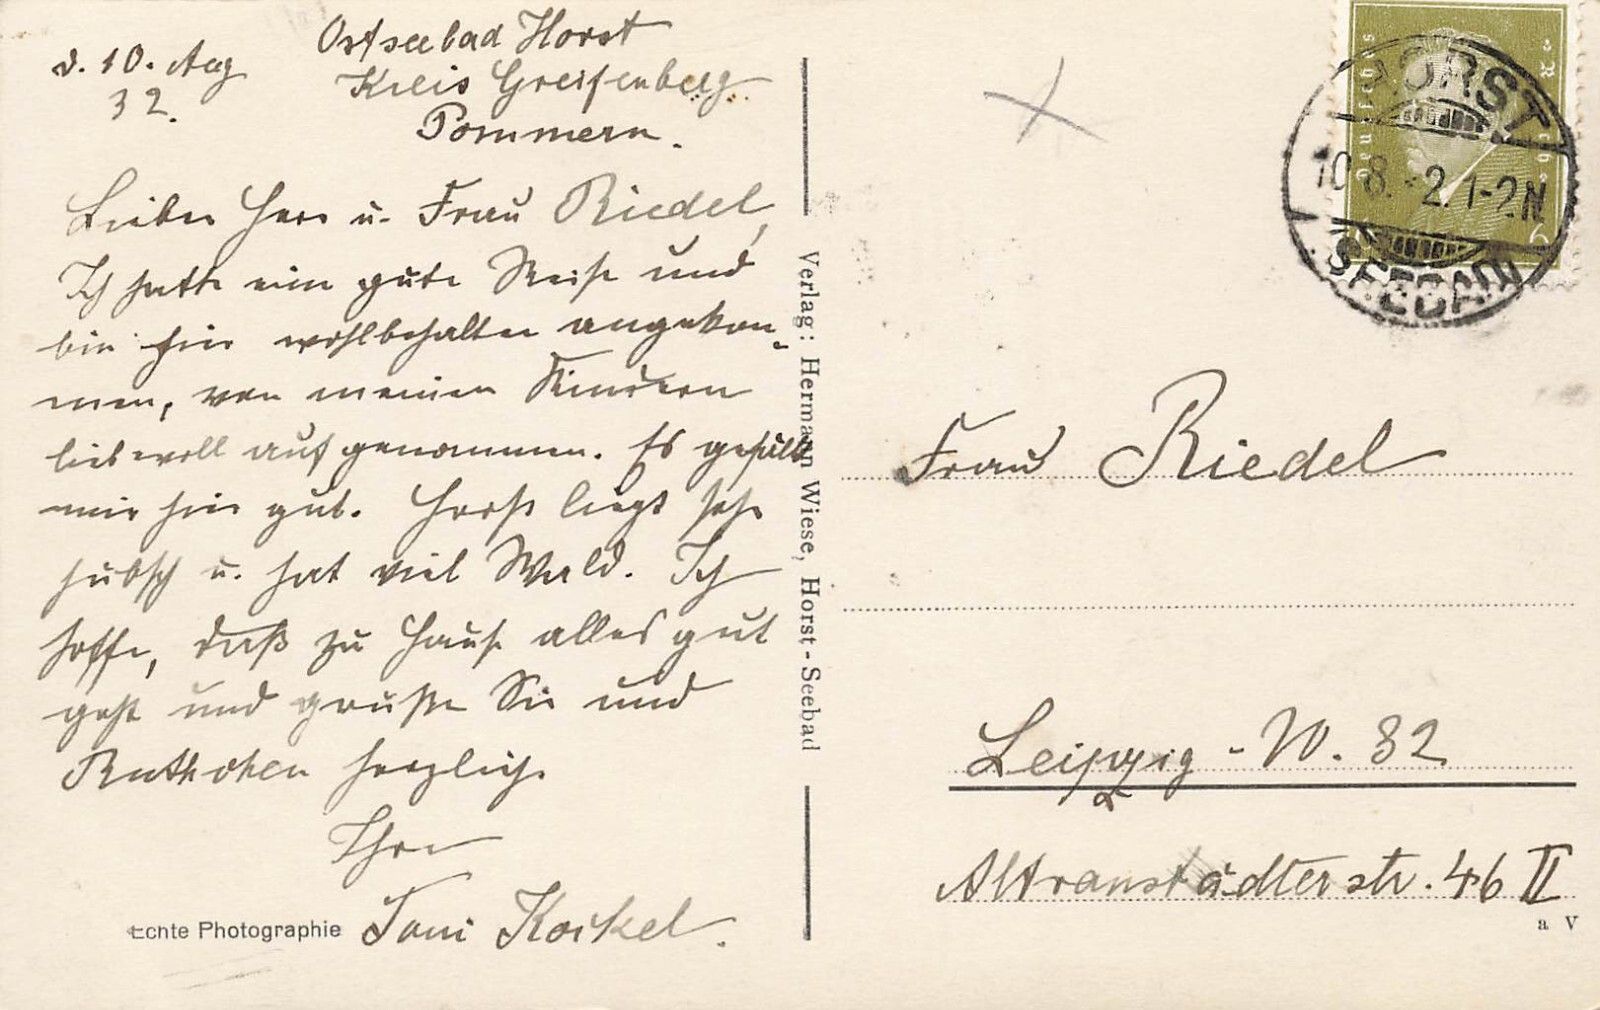 d. 10. Aug
32.
Ostseebad Horst
Kreis Greifenberg
Pommern.
Lieber Herr u. Frau Riedel,
Ich hatte eine gute Reise und
bin hier wohlbehalten angekom-
men, von meinen Kindern
liebevoll aufgenommen. Es gefällt
mir hier gut. Horst liegt sehr
hübsch u. hat viel Wald. Ich
hoffe, daß zu Hause alles gut
geht und grüße Sie und
Ruthchen herzlich.
Ihre
Toni Koikel.
Echte Photographie
Verlag: Hermann Wiese, Horst-Seebad
Deutsches Reich
HORST
10.8.32.1-2N
SEEBAD
Frau Riedel
Leipzig - W. 32
Altranstädterstr. 46 II
a V